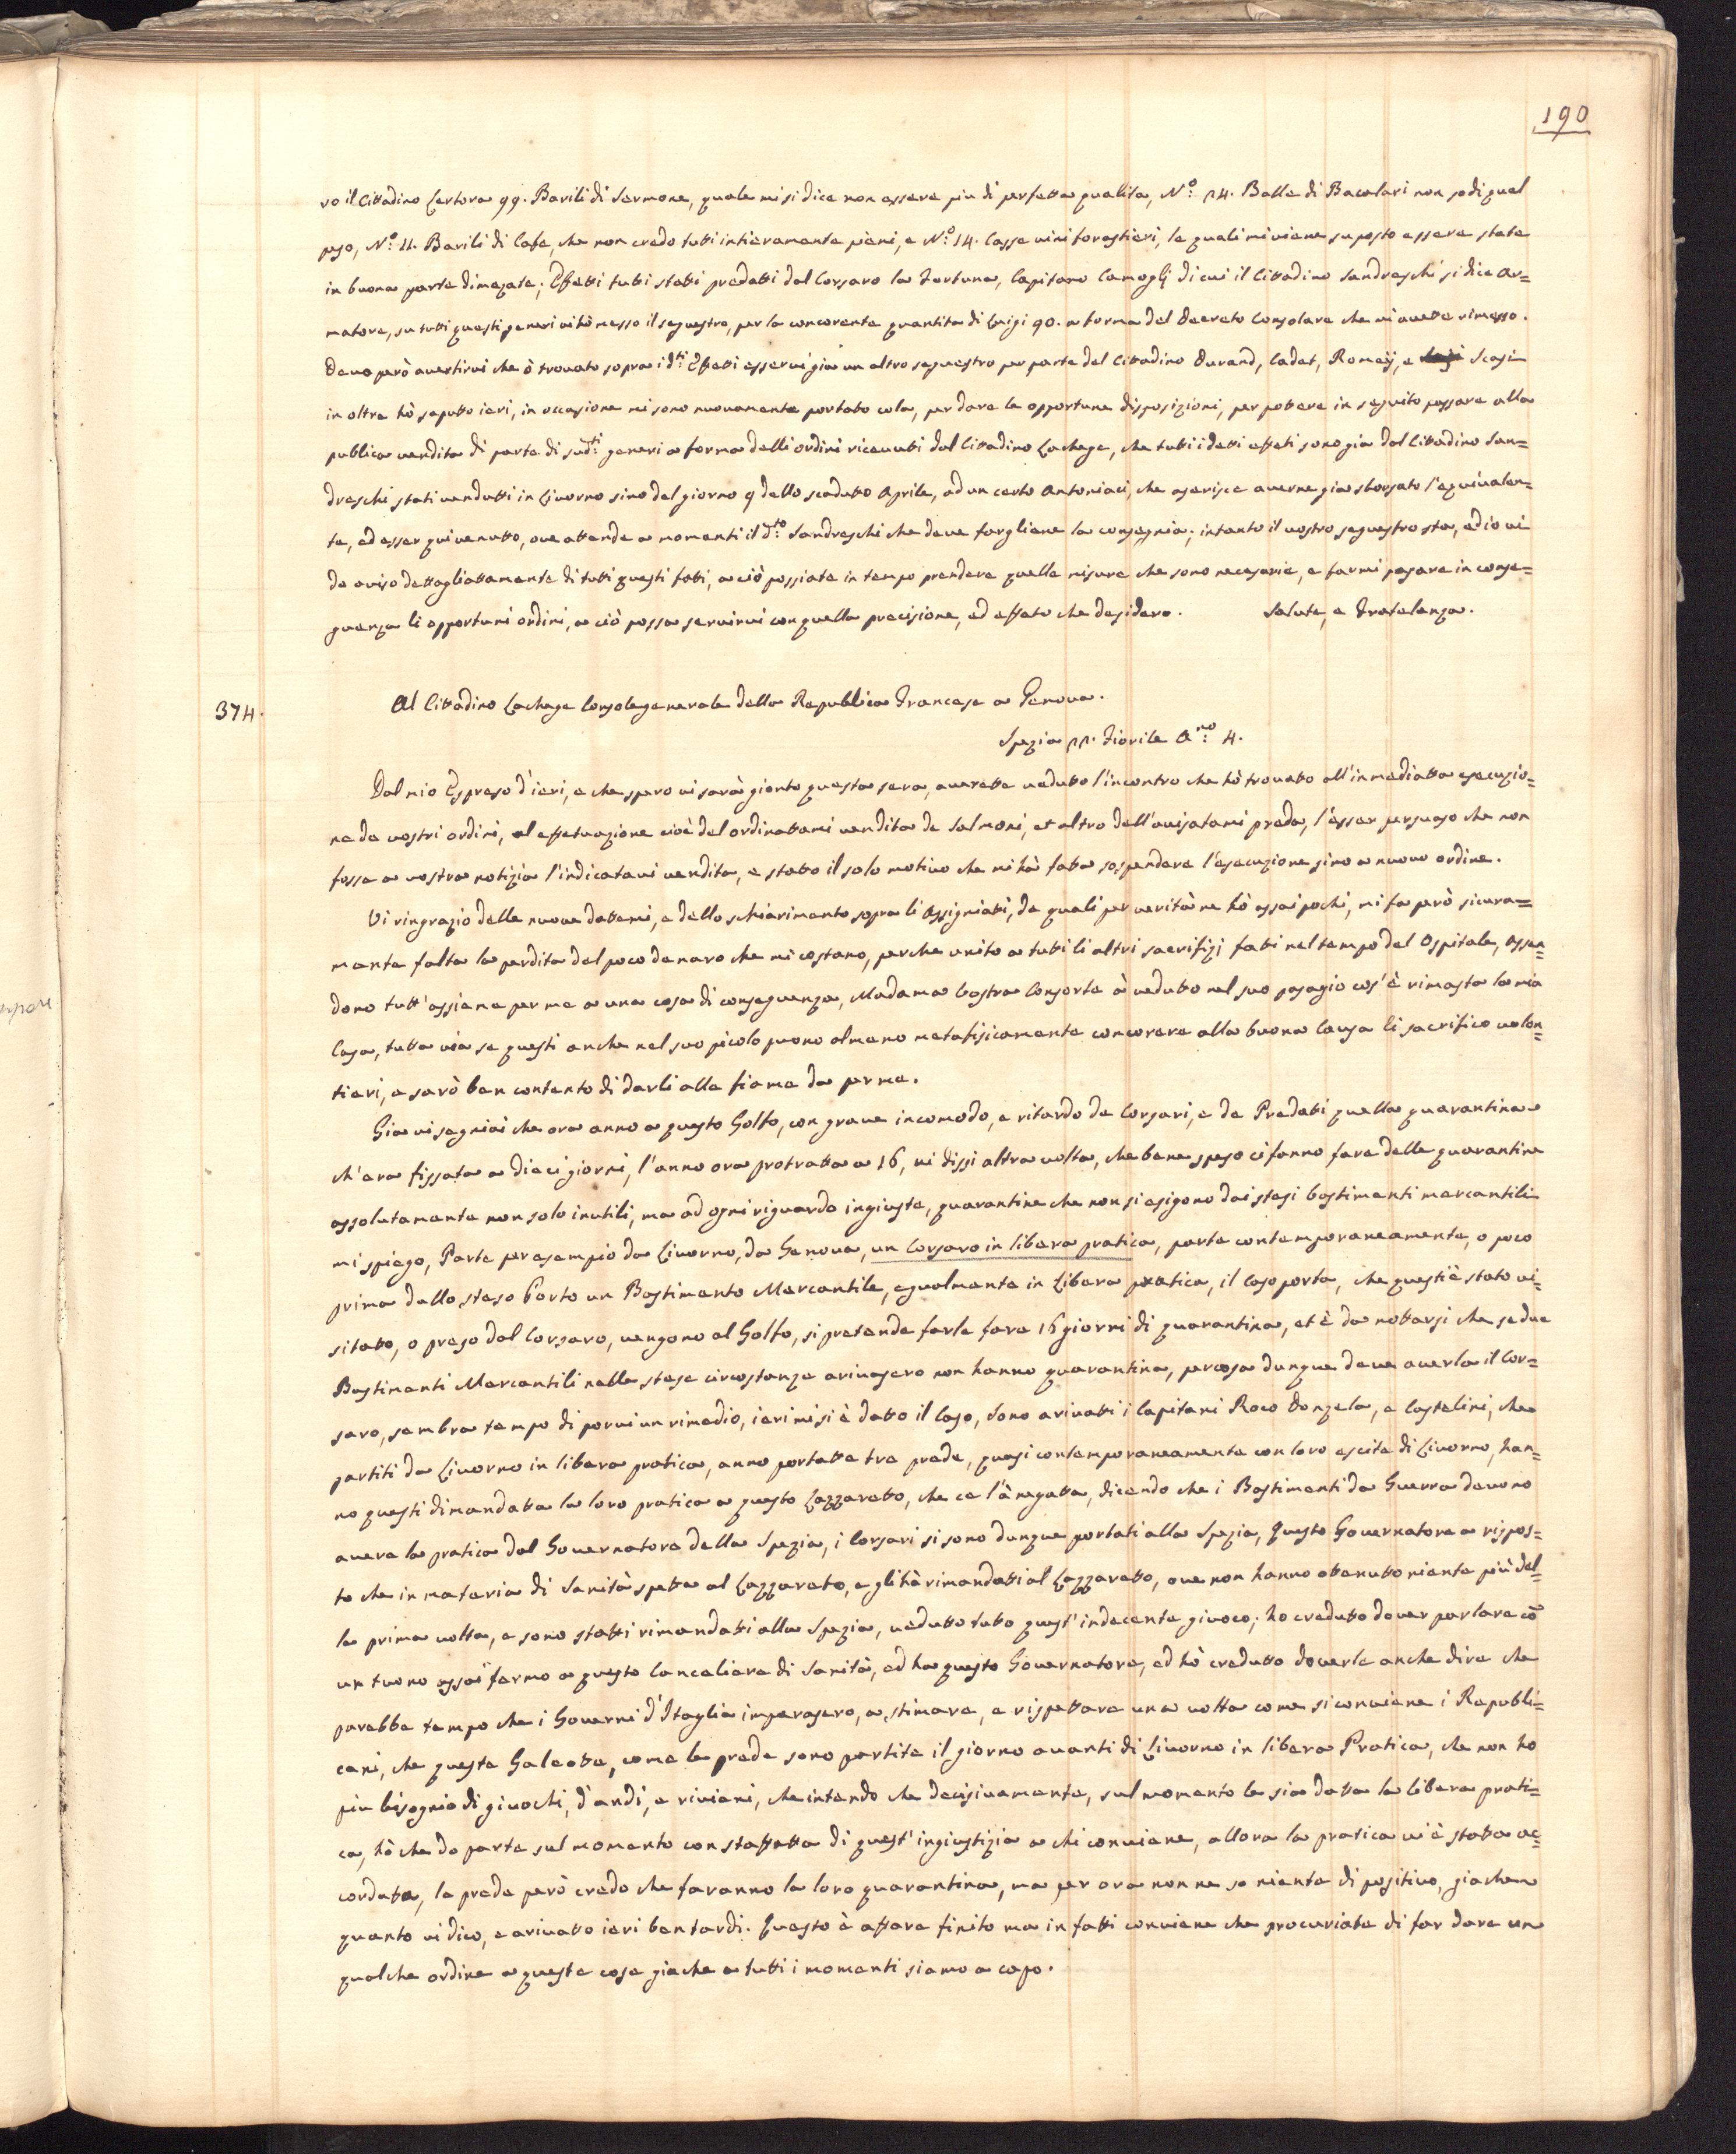 190
ro il Cittadino Certora 99. Barili di Sermone, quale mi si dice non essere piu di perfetta qualita, N.º 24. Balle di Bacalari non so di qual
peso, N.º 11. Barili di Cafe, che non credo tutti intieramente pieni, e N.º 14. Casse vini forastieri, le quali mi viene suposto essere state
in buona parte dimezate; Effetti tutti stati predatti dal Corsaro la Fortuna, Capitano Camoglj di cui il Cittadino Sandreschi si dice Ar=
matore, su tutti questi generi vi hò messo il sequestro, per la concorente quantita di Luigi 90. a forma del Decreto Consolare che mi avette rimesso.
Devo però avertirvi che ò trovato sopra i d.ti Effetti esservi gia un altro sequestro per parte del Cittadino Durand, Cadet, Romeij, e Scasi
in oltre hò saputto ieri, in occasione mi sono nuovamente portato cola, per dare le opportune disposizioni, per pottere in seguito passare alla
publica vendita di parte di sud.ti generi a forma delli ordini ricevuti dal Cittadino Lachege, che tutti i detti effeti sono gia dal Cittadino San=
dreschi stati vendutti in Livorno sino del giorno 9 dello scadutto Aprile, ad un certo Antoniaci, che aserisce averne gia sborsato l'equivalen=
te, ed esser qui venutto, ove attende a momenti il d.to Sandreschi che deve fargliene la consegnia; intanto il vostro sequestro sta, ed io vi
do aviso dettagliattamente di tutti questi fatti, a ciò possiate in tempo prendere quelle misure che sono necesarie, e farmi pasare in conse=
guenza li opportuni ordini, a ciò possa servirvi con quella precisione, ed effeto che desidero. Salute, e Fratelanza.
374. Al Cittadino Lachege Console generale della Republica Francese a Genova.
Spezia 22. Fiorile A.no 4.
Dal mio Espreso d'ieri, e che spero vi sarà gionto questa sera, averette vedutto l'incontro che hò trovatto all'inmediatta esecuzio=
ne de vostri ordini, al effetuazione cioè del ordinattami vendita de Salmoni, et altro dell'avisatami preda, l'esser persuaso che non
fosse a vostra notizia l'indicatavi vendita, e statto il solo motivo che mi hà fatto sospendere l'esecuzione sino a nuovo ordine.
Vi ringrazio delle nuove dattemi, e dello schiarimento sopra li Assigniati, de quali per verità ne hò assai pochi, mi fa però sicura=
mente falta la perdita del poco denaro che mi costano, perche unito a tutti li altri sacrifizj fatti nel tempo del Ospitale, essen=
domi tutt'assieme per me a una cosa di conseguenza, Madama Vostra Consorte à vedutto nel suo pasagio cos'è rimasta la mia
Casa, tutta via se questi anche nel suo picolo puono almeno metafisicamente concorere alla buona Causa li sacrifico volon=
tieri, e sarò ben contento di darli alle fiame da per me.
Gia vi segniai che ora anno a questo Golfo, con grave incomodo, e ritardo de Corsari, e de Predatti quella quarantina
ch'era fissata a dieci giorni, l'anno ora protratta a 16, vi dissi altra volta, che bene speso ci fanno fare delle quarantine
assolutamente non solo inutili, ma ad ogni riguardo ingiuste, quarantine che non si esigono dai stesi bastimenti mercantili
mi spiego, Parte per esempio da Livorno, da Genova, un Corsaro in libera pratica, parte contemporaneamente, o poco
prima dallo steso Porto un Bastimento Mercantile, egualmente in Libera pratica, il Caso porta, che questi è stato vi=
sitatto, o preso dal Corsaro, vengono al Golfo, si pretende farle fare 16 giorni di quarantina, et è da nottarsi che se due
Bastimenti Mercantili nelle stese circostanze arivasero non hanno quarantina, percosa dunque deve averla il Cor=
saro, sembra tempo di porvi un rimedio, ieri mi si è datto il Caso, sono arivatti i Capitani Roco Donzela, e Castelini, che
partiti da Livorno in libera pratica, anno portatte tre prede, quasi contemporaneamente con loro escite di Livorno, han=
no questi dimandatta la loro pratica a questo Lazzaretto, che ce l'à negatta, dicendo che i Bastimenti da Guerra devono
avere la pratica dal Governatore della Spezia, i Corsari si sono dunque portati alla Spezia, Questo Governatore a rispos=
to che in materia di Sanità spetta al Lazzareto, e gli hà rimandatti al Lazzaretto, ove non hanno otenutto niente più del=
la prima volta, e sono statti rimandatti alla Spezia, vedutto tutto quest'indecente givoco; ho credutto dover parlare cõ
un tuono assai fermo a questo Canceliere di Sanità, ed ha questo Governatore, ed hò credutto doverle anche dire che
parebbe tempo che i Governi d'Itaglia imperasero, a stimare, e rispettare una volta come si conviene i Republi=
cani, che queste Galeotte, come le prede sono partite il giorno avanti di Livorno in libera Pratica, che non ho
piu bisognio di givochi, d'andi, e rivieni, che intendo che decisivamente, sul momento le sia data la libera prati=
ca, hò che do parte sul momento con staffetta di quest'ingiustizia a chi conviene, allora la pratica vi è statta ac=
cordatta, le prede però credo che faranno la loro quarantina, ma per ora non ne so niente di positivo, giache
quanto vi dico, e arivatto ieri ben tardi. Questo è affare finito ma in fatti conviene che procuriate di far dare un
qualche ordine a queste cose giache a tutti i momenti siamo a capo.